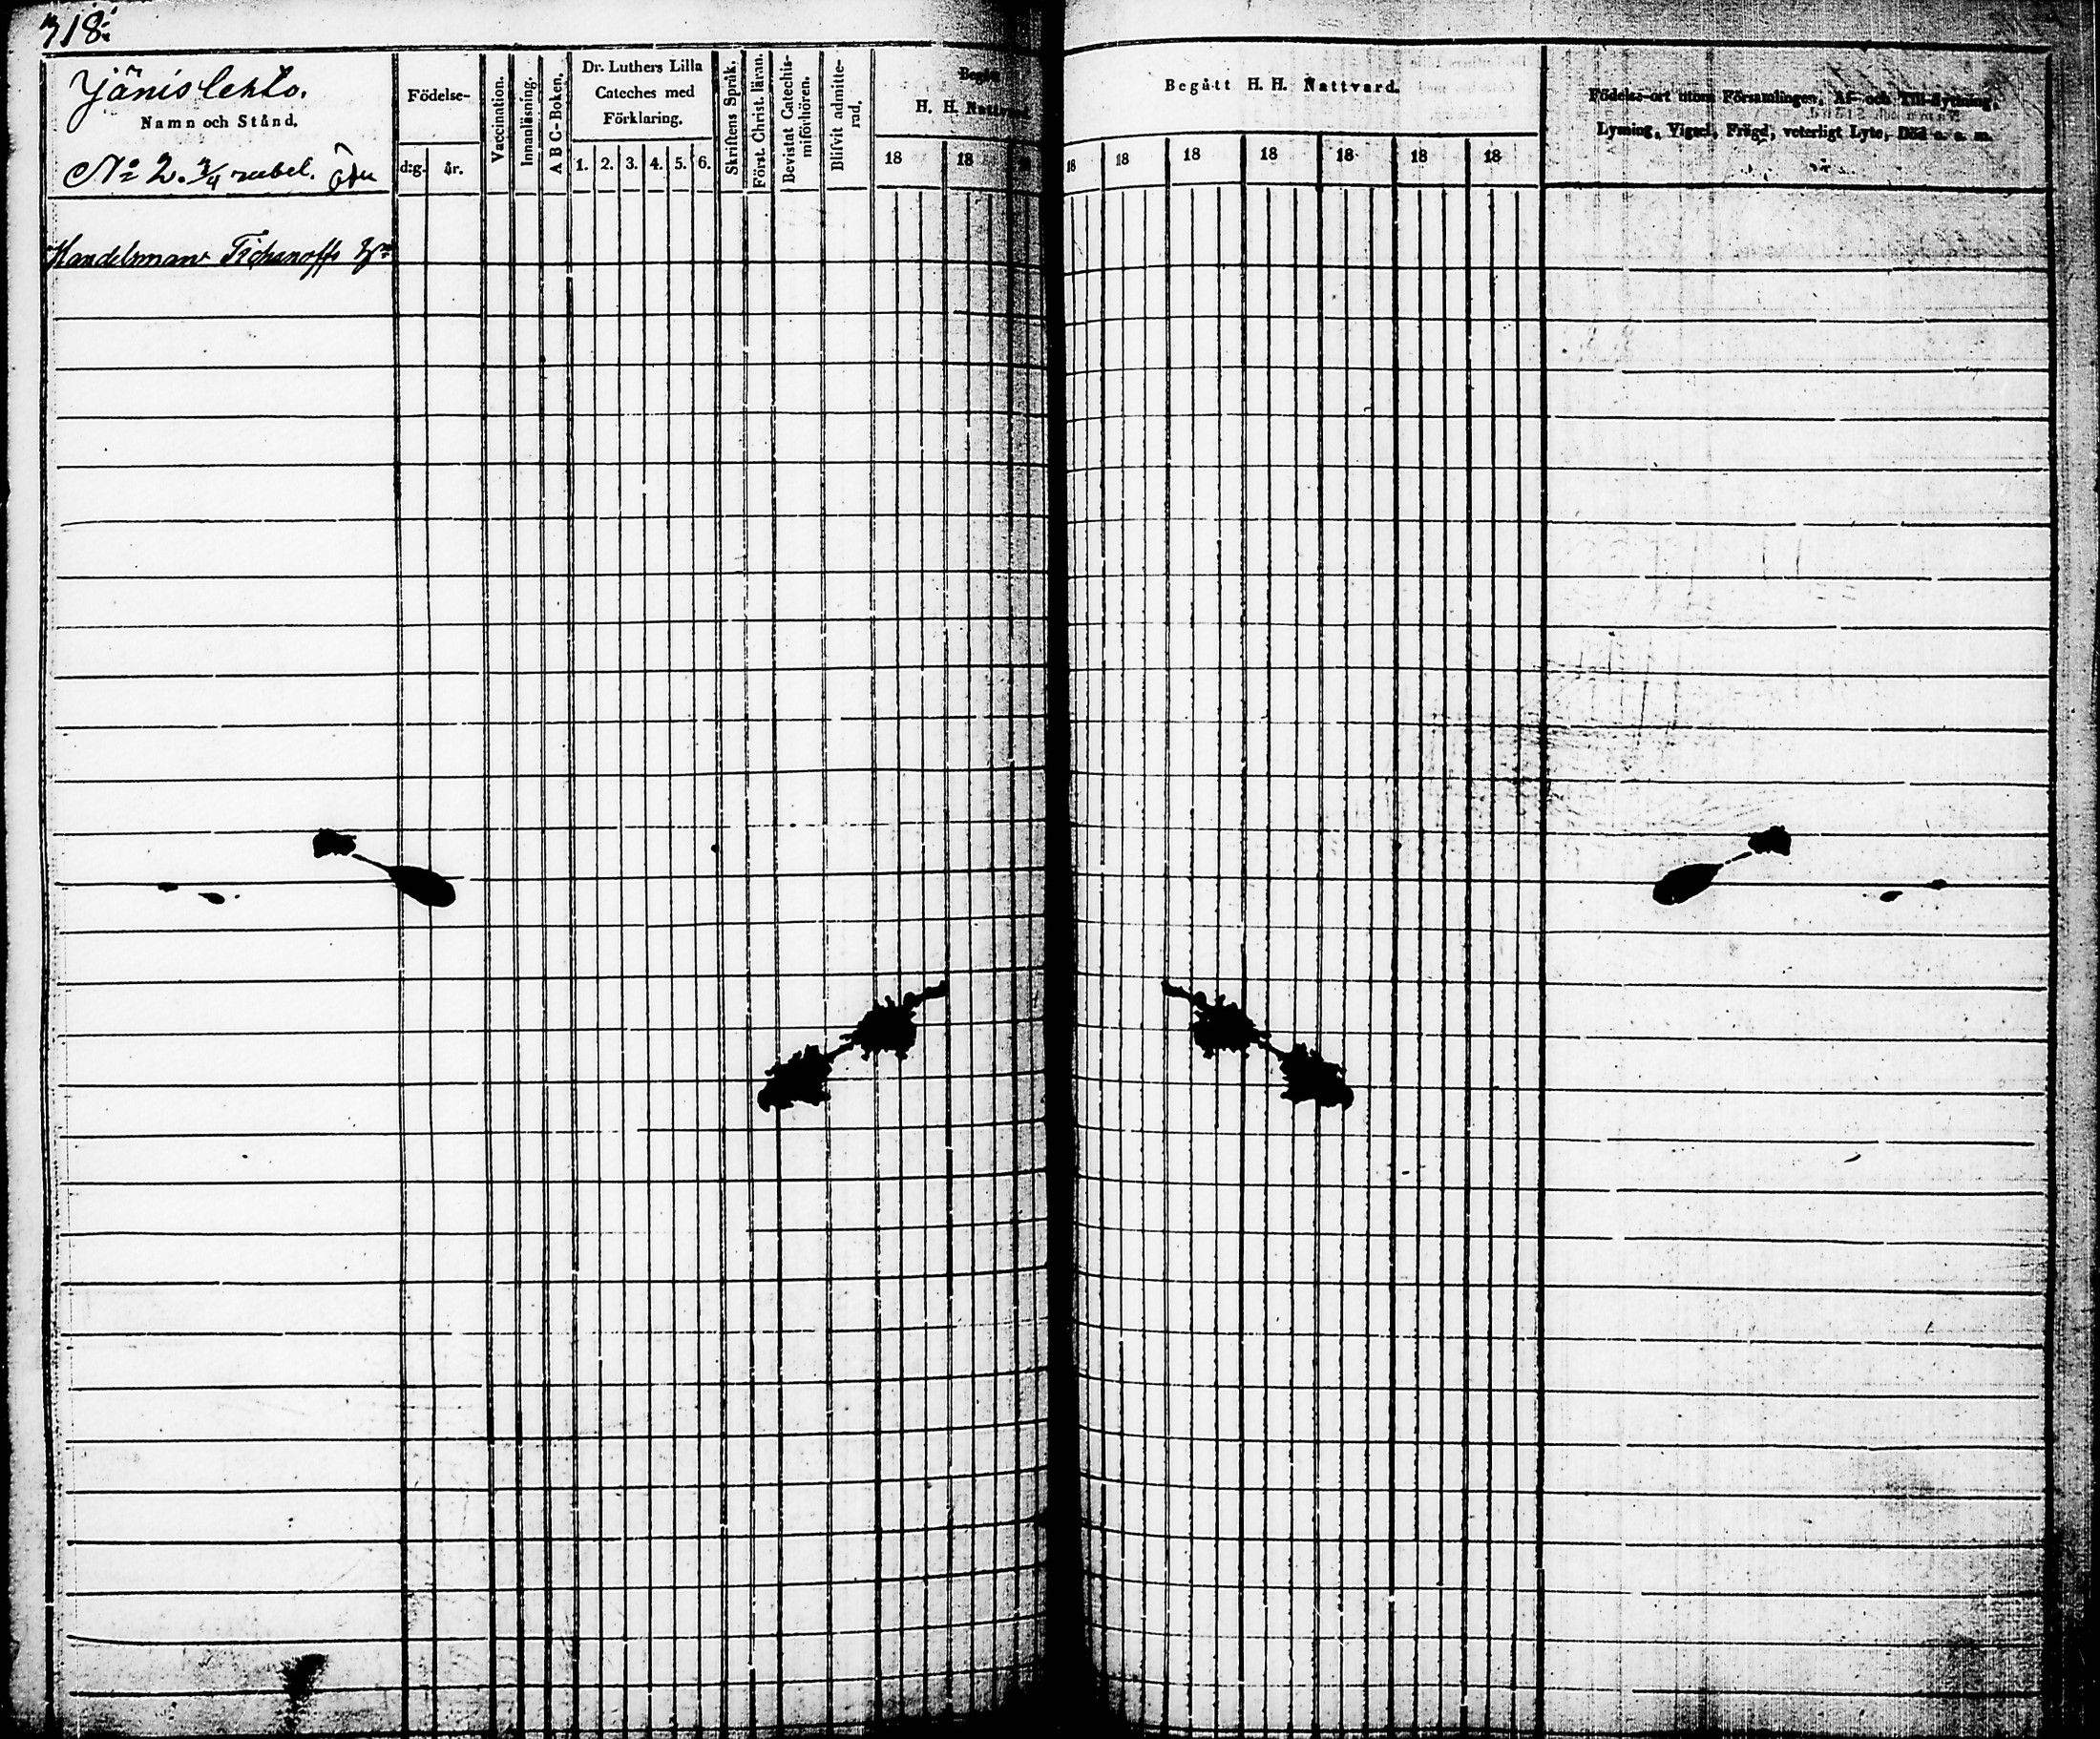 718.
Jänislehto.
Namn och Stånd.
No 2. 3/4 rubel. öde
Födelse-
d:g. år.
Vaccination.
Innanläsning.
A B C-Boken.
Dr. Luthers Lilla
Cateches med
Förklaring.
1. 2. 3. 4. 5. 6.
Skriftens Språk.
Först. Christ. läran.
Bevistat Catechis-
miförhören.
Blifvit admitte-
rad.
Begått
H. H. Nattvard
18 18
Begått H. H. Nattvard.
18 18 18 18 18 18 18
Födelse-ort utom Församlingen, Af- och Till-flyttning,
Lysning, Vigsel, Frägd, veterligt Lyte, Död o. s. m.
Handelsman Tichanoffs